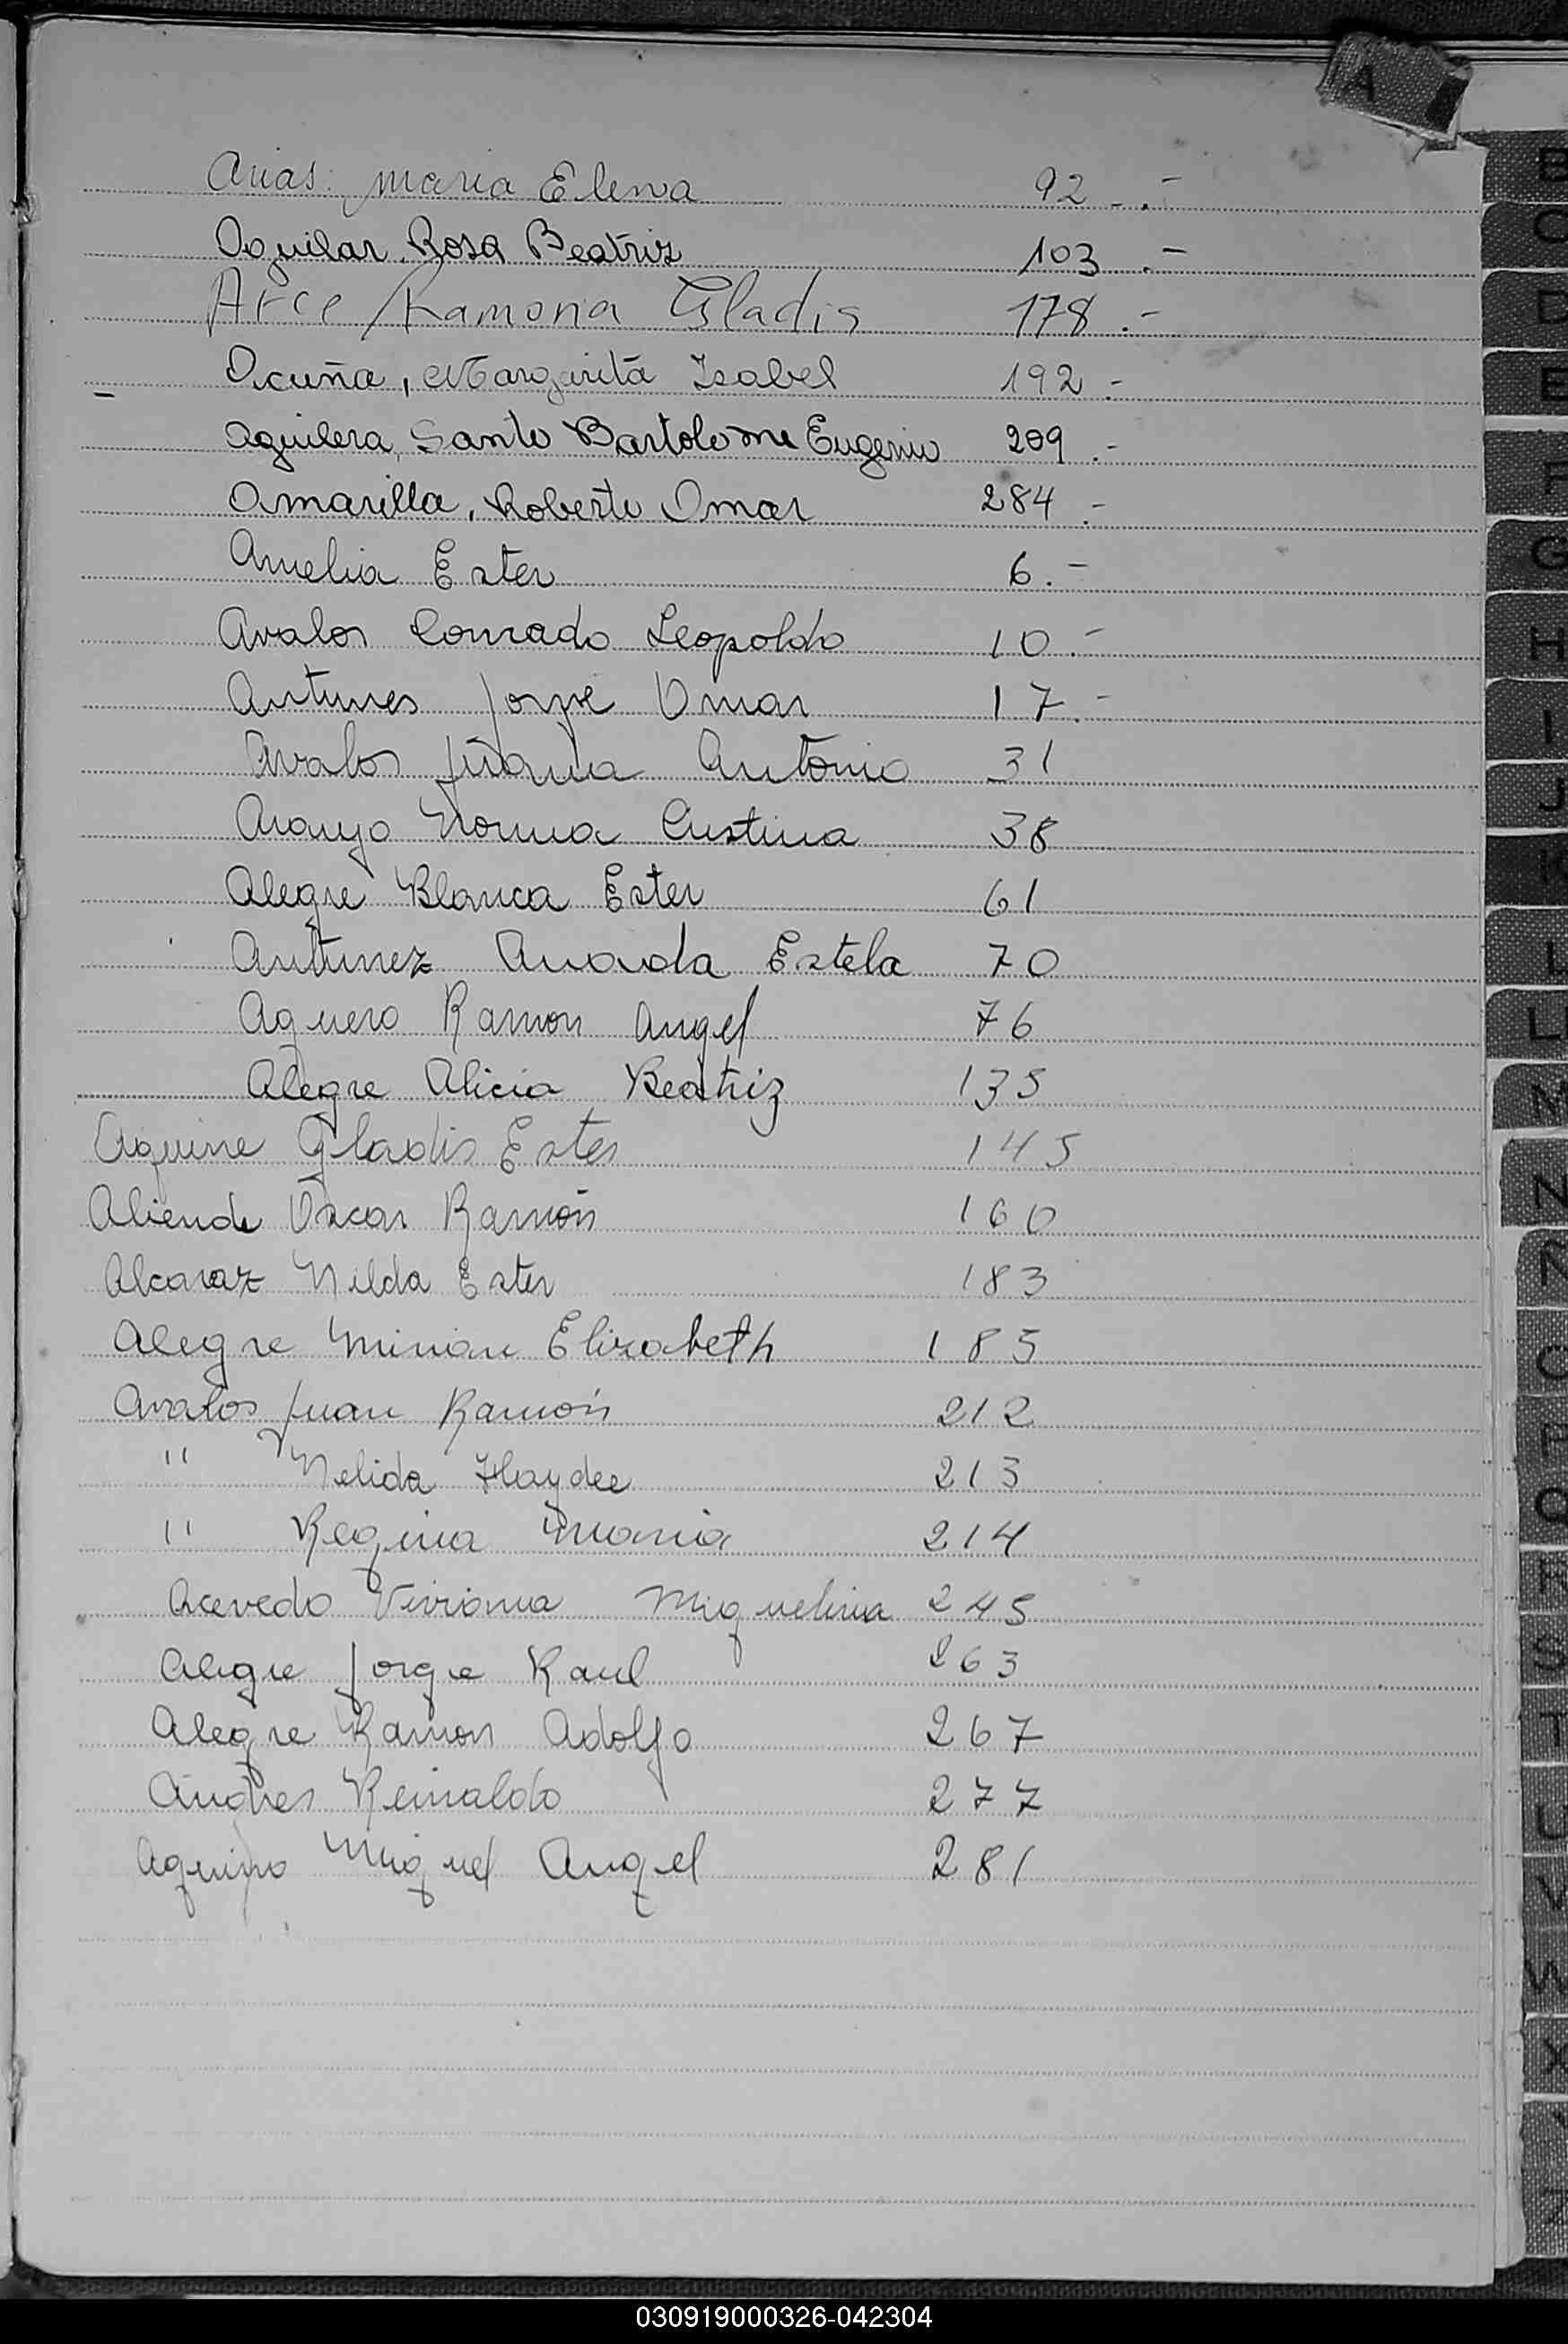 A
Arias. Maria Elena 92 -.-
Aguilar. Rosa Beatriz 103 .-
Arce Ramona Gladis 178 .-
Acuña, Margarita Isabel 192 .-
Aguilera, Santo Bartolome Eugenio 209 .-
Amarilla, Roberto Omar 284 .-
Amelia Ester 6.-
Avalos Conrado Leopoldo 10.-
Antunes Jorge Omar 17.-
Avalos Juana Antonia 31
Araujo Norma Cristina 38
Alegre Blanca Ester 61
Antunez Estela 70
Aguero Ramon Angel 76
Alegre Alicia Beatriz 135
Aquine Gladis Ester 145
Aliende Oscar Ramón 160
Alcaraz Nilda Ester 183
Alegre Mirian Elizabeth 185
Avalos Juan Ramón 212
" Nelida Haydee 213
" Regina Maria 214
Acevedo Viviana Miguelina 245
Alegre Jorge Raul 263
Alegre Ramon Adolfo 267
Andres Reinaldo 277
Aquino Miguel Angel 281
B
C
D
E
F
G
H
I
J
K
L
LL
M
N
Ñ
O
P
Q
R
S
T
U
V
W
X
Y
Z
030919000326-042304